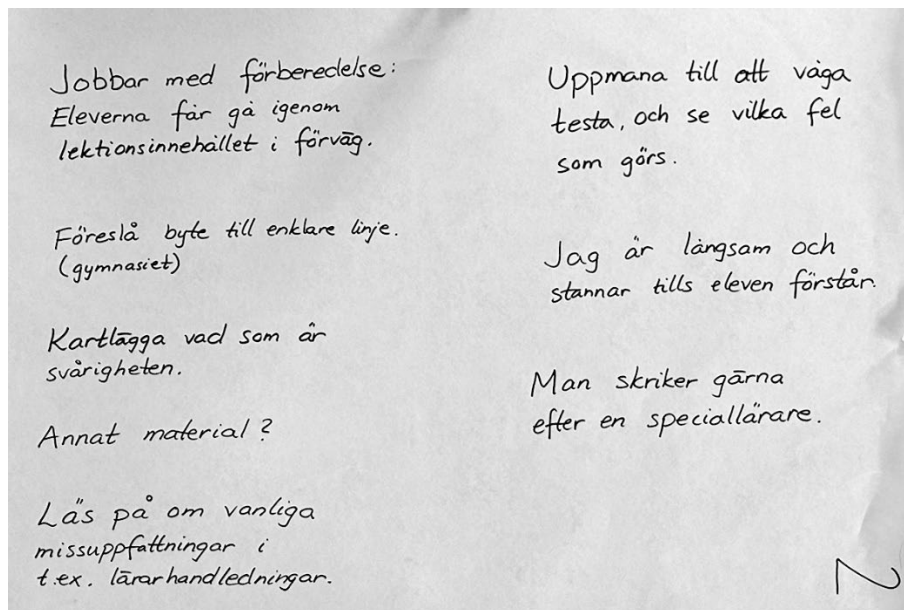 Jobbar med förberedelse:
Eleverna får gå igenom
lektionsinnehållet i förväg.
Föreslå byte till enklare linje.
(gymnasiet)
Kartlägga vad som är
svårigheten.
Annat material?
Läs på om vanliga
missuppfattningar i
t.ex. lärarhandledningar.
Uppmana till att våga
testa, och se vilka fel
som görs.
Jag är långsam och
stannar tills eleven förstår.
Man skriker gärna
efter en speciallärare.